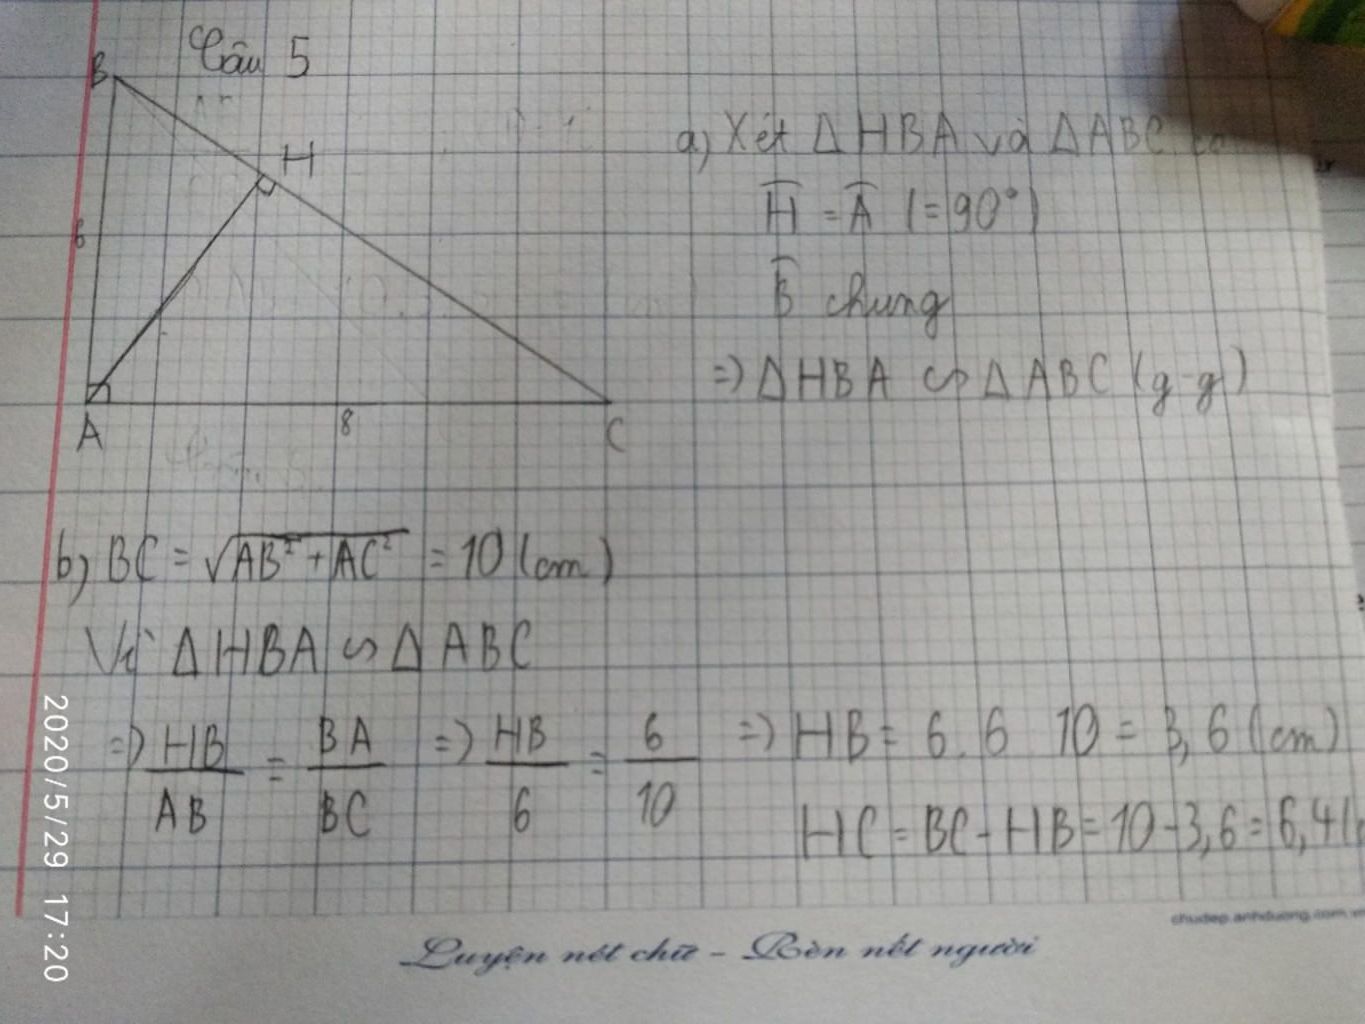 Câu 5
B
H
6
A
8
C
a) Xét ΔHBA và ΔABC có
H̄ = Ā (=90°)
B̄ chung
=> ΔHBA ∽ ΔABC (g-g)
b) BC = √AB² + AC² = 10 (cm)
Vì ΔHBA ∽ ΔABC
=> HB/AB = BA/BC => HB/6 = 6/10 => HB = 6.6 10 = 3,6 (cm)
HC = BC - HB = 10 - 3,6 = 6,4 (
2020/5/29 17:20
chudep.anhduong.com.v
Luyện nét chữ - Rèn nết người